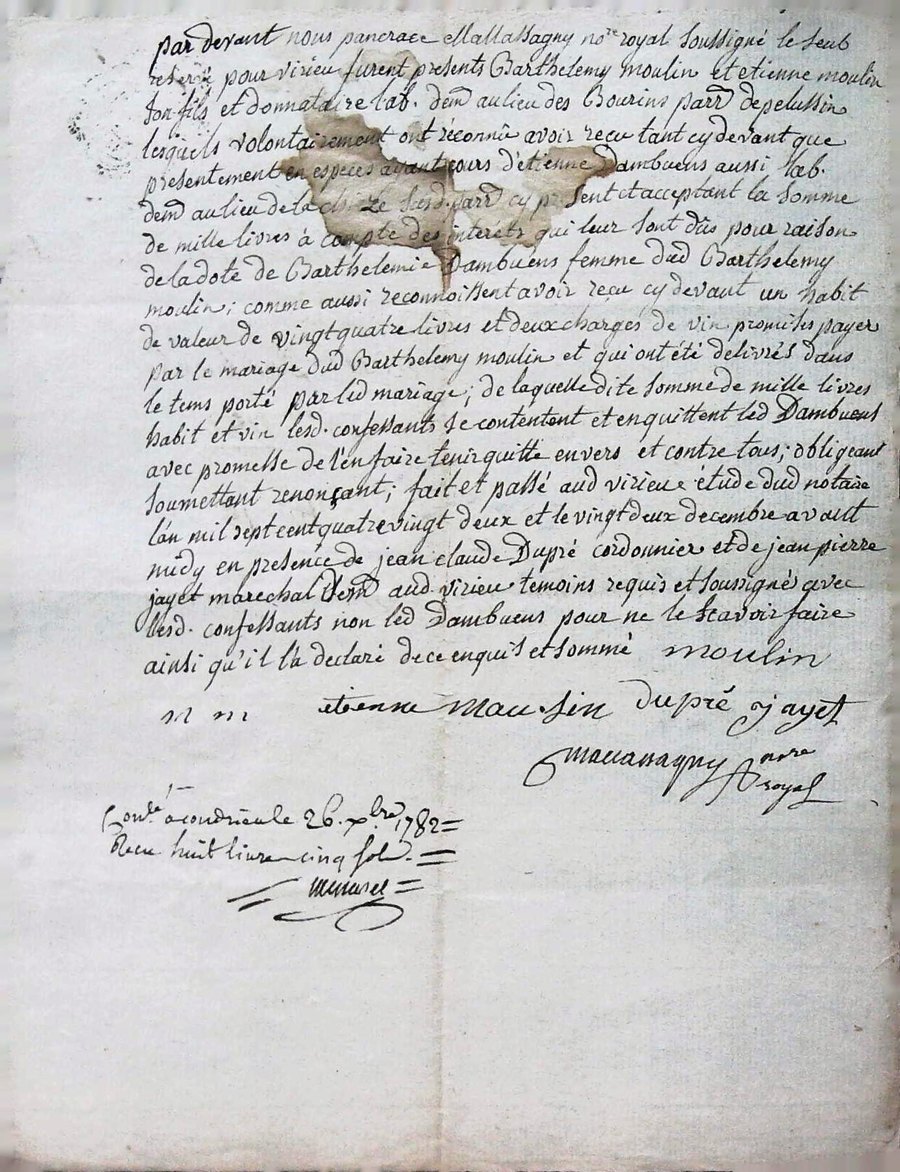 par devant nous pancrace Mallassagny no.re royal soussigné le seul
reservé pour virieu furent presents Barthelemy moulin et etienne moulin
son fils et donnataire lab. dem aulieu des Bourins parr depelussin
lesquels volontairement ont réconnu avoir reçu tant cy devant que
presentement en especes ayant cours d'etienne Dambuens aussi lab.
dem au lieu de la susd. parr cy present et acceptant la somme
de mille livres à compte des interéts qui leur sont dûs pour raison
de la dote de Barthelemie Dambuens femme dud Barthelemy
moulin; comme aussi reconnoissent avoir reçu cy devant un habit
de valeur de vingt quatre livres et deux charges de vin promises payer
par le mariage dud Barthelemy moulin et qui ont été delivrés dans
le tems porté par led mariage; de laquelle dite somme de mille livres
habit et vin lesd. confessants se contentent et en quittent led Dambuens
avec promesse de l'en faire tenir quitte envers et contre tous; obligeant
soumettant renonçant; fait et passé aud virieu étude dud notaire
l'an mil sept cent quatre vingt deux et le vingt deux decembre avant
midy en presence de jean claude Dupré cordonnier et de jean pierre
jayet marechal dem aud virieu temoins requis et soussignés avec
lesd. confessants non led Dambuens pour ne le scavoir faire
ainsi qu'il l'a declaré de ce enquis et sommé moulin
etienne moulin dupré jayet
Mallassagny nore
royal
Con.lé a condrieu le 26. xbre 1782 =
Recu huit livres cinq sols. =